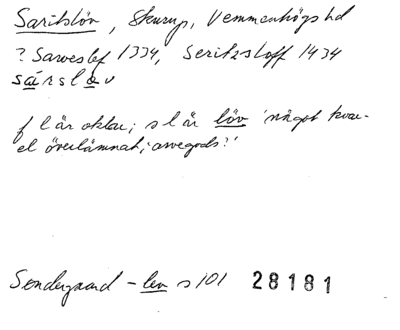 Saritslöv, Skurup, Vemmenhögs hd
? Sarveslef 1334, Seritzsloff 1434
sárslǝv
f l är oklar; s l är löv 'något kvar-
el överlämnat; arvegods?'
Søndergaard -lev s 101 28181